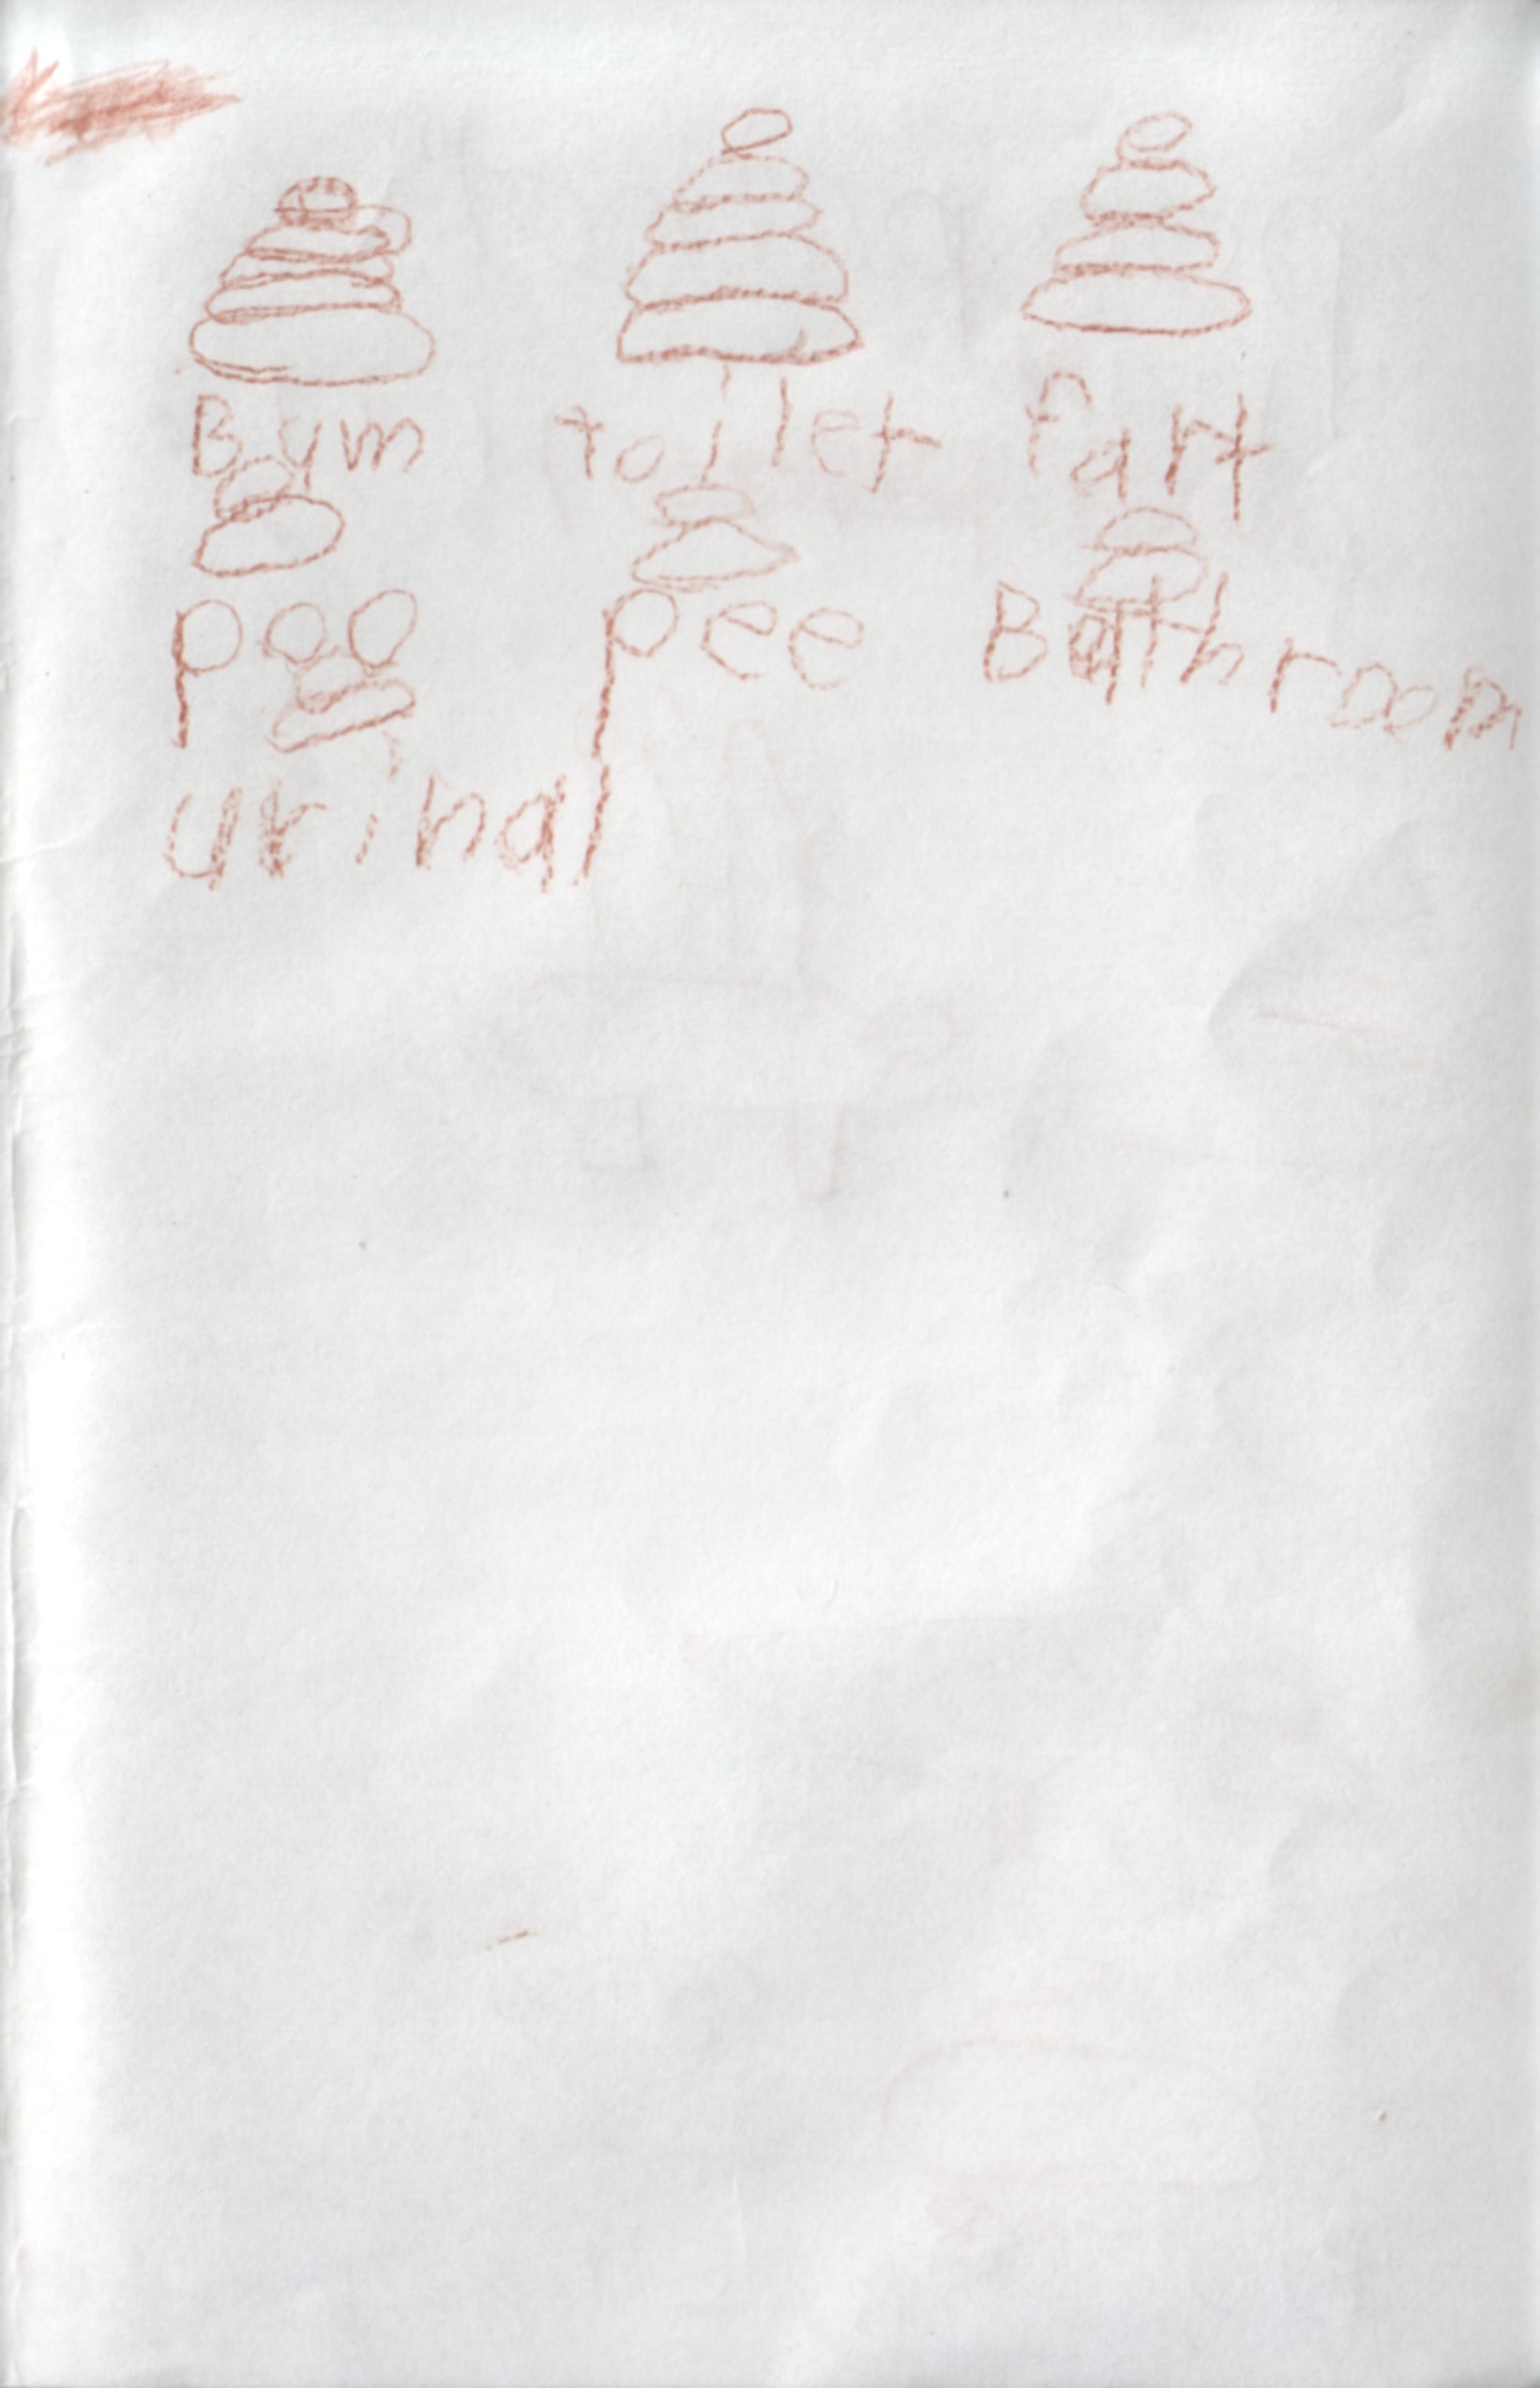 Bum toilet fart
poo pee Bathroom
urinal